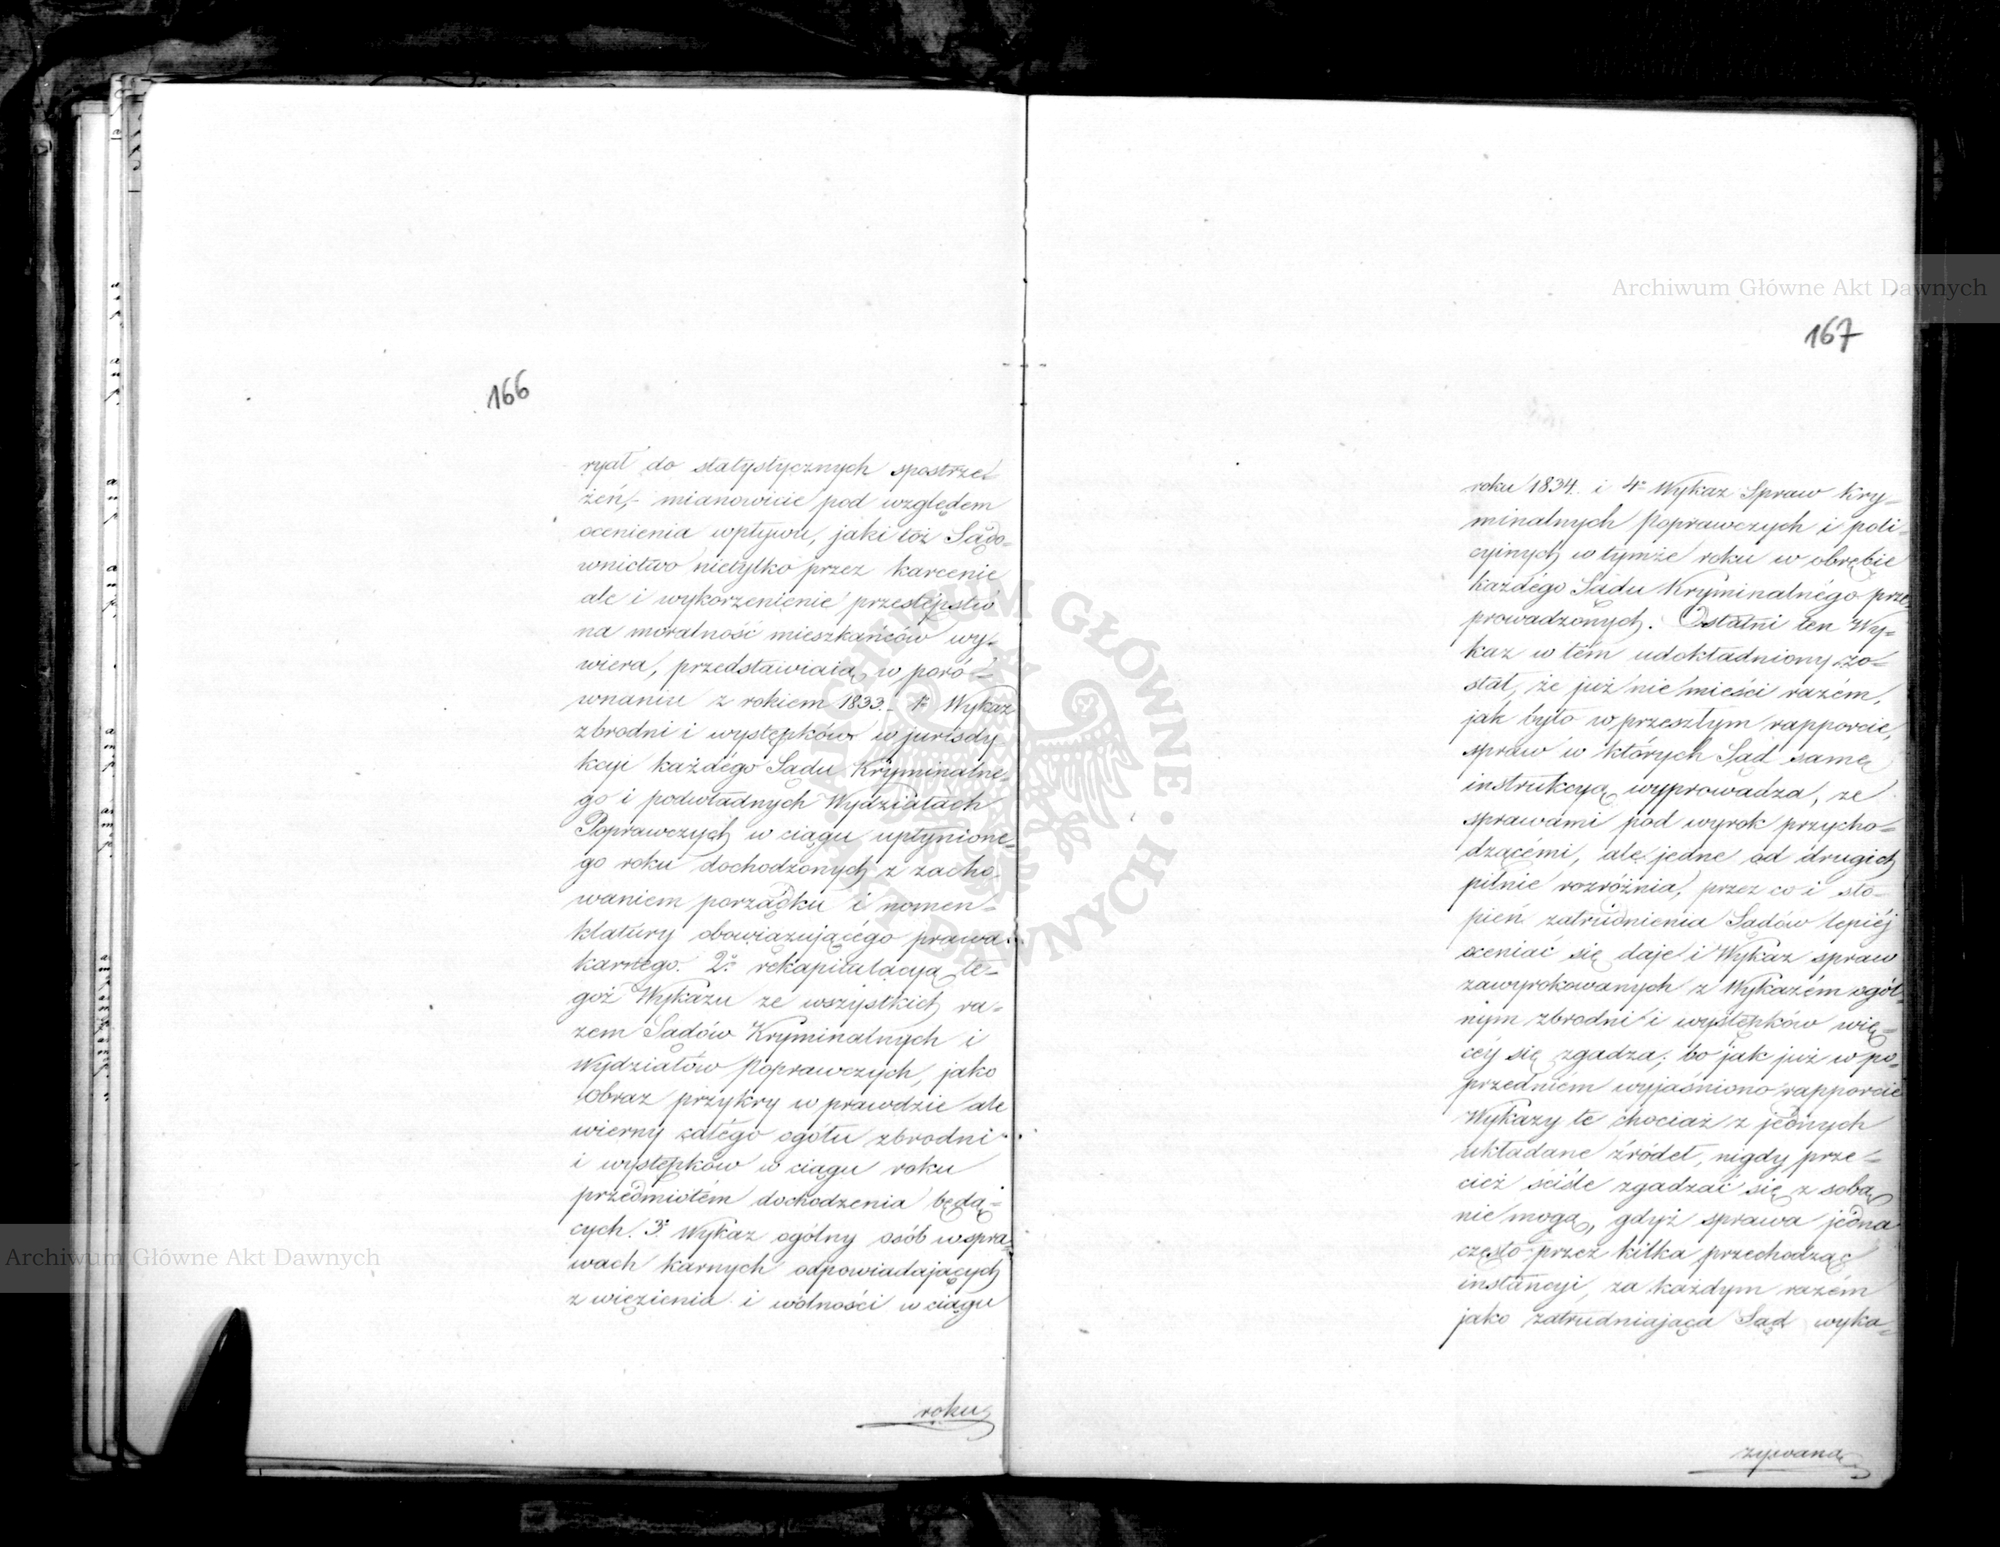 166
ryał do statystycznych spostrze-
żeń, mianowicie pod względem
ocenienia wpływu, jaki toż Sądo-
wnictwo nietylko przez karcenie
ale i wykorzenienie przestępstw
na moralność mieszkańców wy-
wiera, przedstawiają w poró-
wnaniu z rokiem 1833. 1º Wykaz
zbrodni i występków w jurisdy-
kcji każdégo Sądu Kryminalne-
go i podwładnych Wydziałach
Poprawczych w ciągu upłynione-
go roku dochodzonych z zacho-
waniem porządku i nomen-
klatury obowiązującégo prawa
karnego. 2º rekapitulacyą te-
goż Wykazu ze wszystkich ra-
zem Sądów Kryminalnych i
Wydziałów Poprawczych, jako
obraz przykry w prawdzie ale
wierny całégo ogółu zbrodni
i występków w ciągu roku
przedmiotém dochodzenia będą-
cych. 3º Wykaz ogólny osób w spra-
wach karnych odpowiadających
z więzienia i wolności w ciągu
roku
167
roku 1834. i 4º Wykaz Spraw Kry-
minalnych Poprawczych i poli-
cyinych w tymże roku w obrębie
każdégo Sądu Kryminalnégo prze-
prowadzonych. Ostatni ten Wy-
kaz w tém udokładniony zo-
stał, że już nie mieści razém,
jak było w przeszłym rapporcie,
spraw w których Sąd samę
instrukcyą wyprowadza, ze
sprawami pod wyrok przycho-
dzącémi, ale jedne od drugich
pilnie rozróżnia, przez co i sto-
pień zatrudnienia Sądów lepiéj
oceniać się daje i Wykaz spraw
zawyrokowanych z Wykazém ogól-
nym zbrodni i występków wię-
céj się zgadza; bo jak już w po-
przedniém wyjaśniono rapporcie
Wykazy te chociaż z jednych
układane źródeł, nigdy prze-
cież ściśle zgadzać się z sobą
nie mogą, gdyż sprawa jedna
często przez kilka przechodząc
instancyi, za każdym razém
jako zatrudniająca Sąd wyka-
zywana
Archiwum Główne Akt Dawnych
Archiwum Główne Akt Dawnych
ARCHIWUM GŁÓWNE AKT DAWNYCH